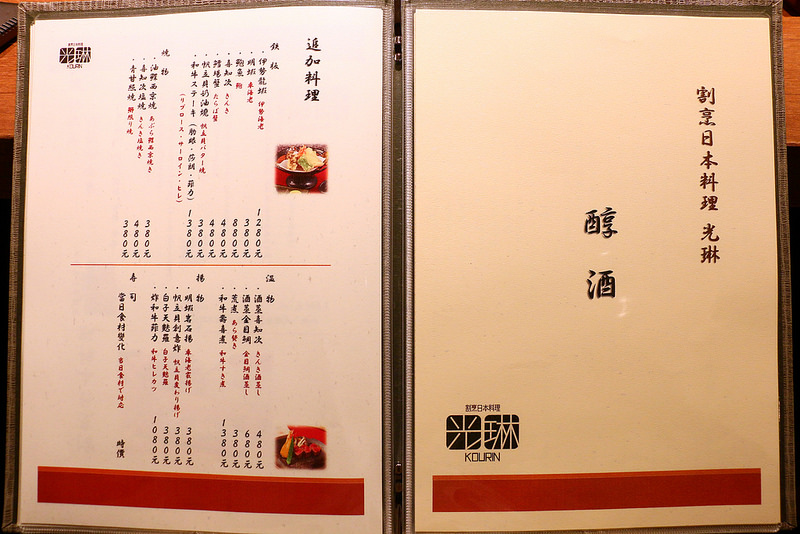 割烹日本料理 光琳
醇酒
割烹日本料理
光琳
KOURIN
光琳
KOURIN
追加料理
鉄板
・伊勢龍蝦 伊勢海老 1280元
・明蝦 車海老 380元
・鮑魚 鮑 880元
・喜知次 きんき 480元
・鱈場蟹 たらば蟹 480元
・帆立貝奶油燒 帆立貝バター焼 380元
・和牛ステーキ (肋眼・莎朗・菲力) 1380元
(リブロース・サーロイン・ヒレ)
焼物
・油鰈西京燒 あぶら鰈西京焼き 380元
・喜知次塩燒 きんき塩焼き 480元
・青甘照燒 鰤照り焼 380元
温物
・酒蒸喜知次 きんき酒蒸し 480元
・酒蒸金目鯛 金目鯛酒蒸し 680元
・荒煮 あら煮き 380元
・和牛壽喜煮 和牛すき煮 1380元
揚物
・明蝦岩石揚 車海老岩揚げ 380元
・帆立貝創意炸 帆立貝変わり揚げ 380元
・白子天麩羅 白子天麩羅 380元
・炸和牛菲力 和牛ヒレカツ 1080元
寿司
當日食材變化 当日食材で対応 時價